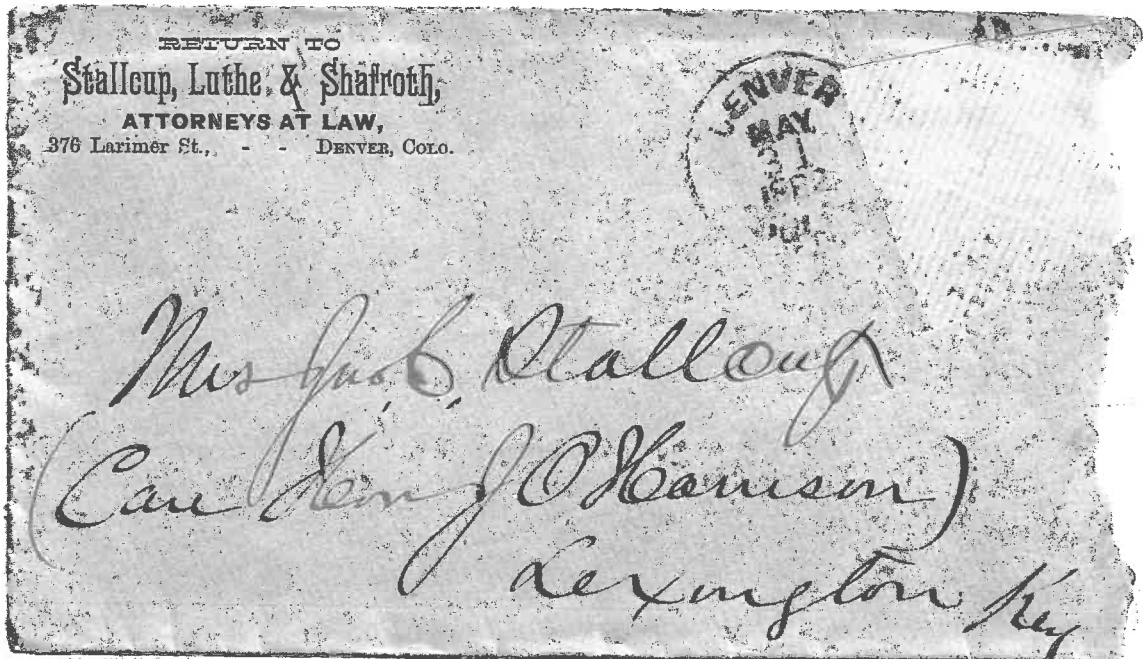 RETURN TO
Stallcup, Luthe, & Shafroth,
ATTORNEYS AT LAW,
376 Larimer St., - - DENVER, COLO.
DENVER
MAY
Mrs Jno. C. Stallcup
(Care Hon J O Harrison)
Lexington Key